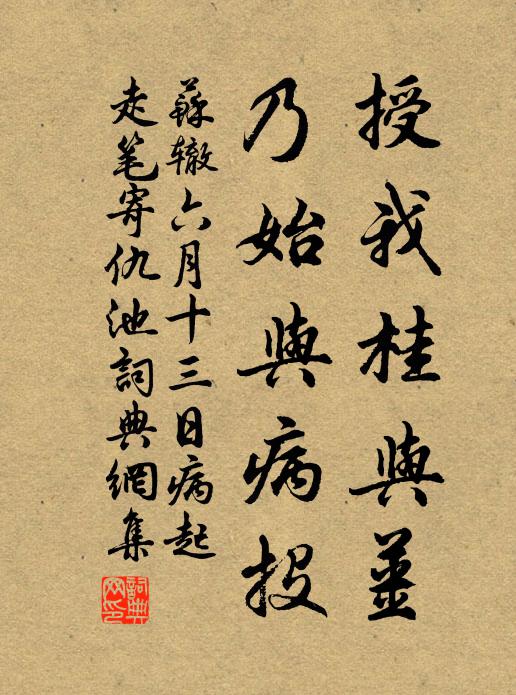 授我桂與薑
乃始與病投
蘇辙六月十三日病起
走笔寄仇池詞典網集
詞典
网印